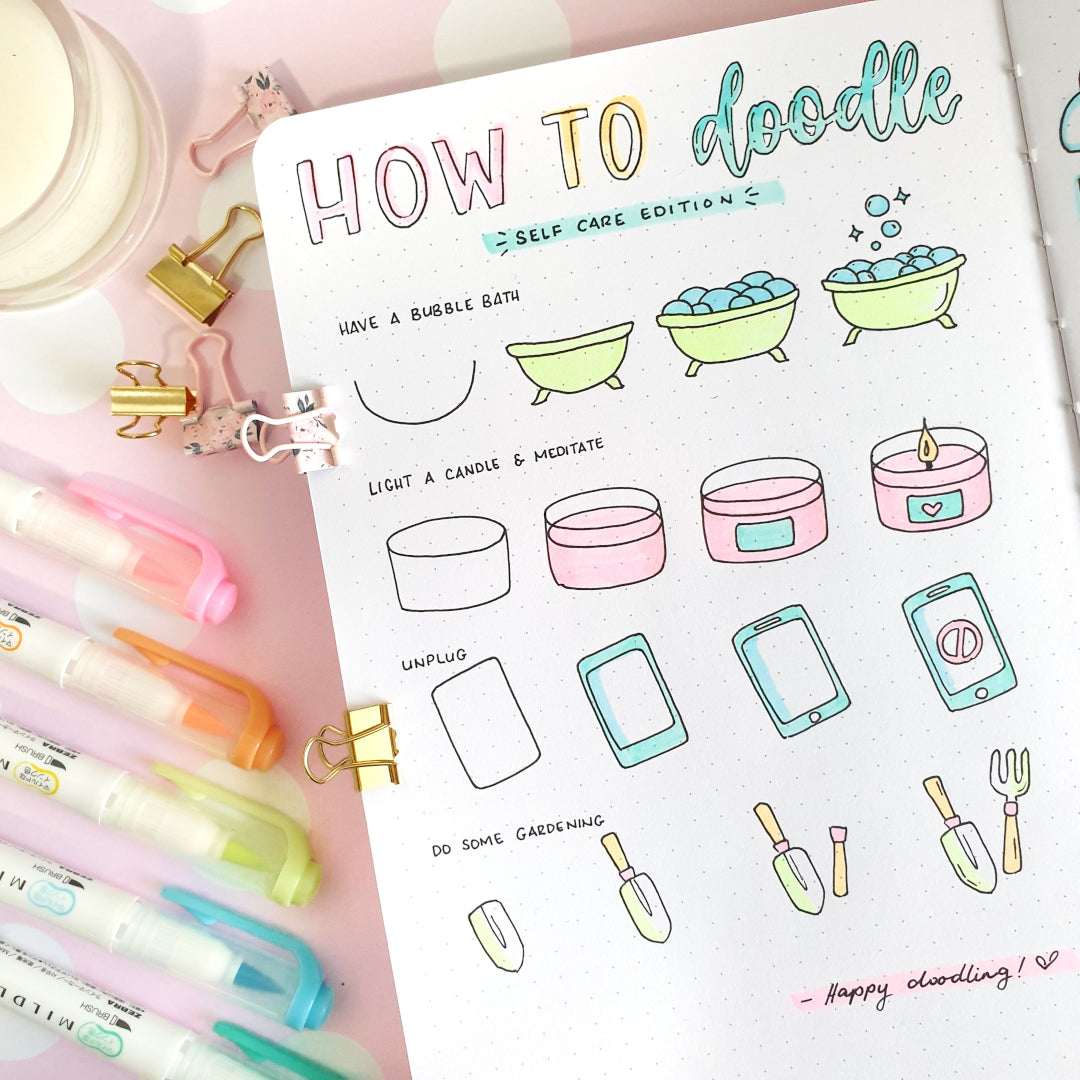 HOW TO doodle
SELF CARE EDITION
HAVE A BUBBLE BATH
LIGHT A CANDLE & MEDITATE
UNPLUG
DO SOME GARDENING
- Happy doodling!
ZEBRA
BRUSH
ZEBRA
BRUSH
ZEBRA
BRUSH
MILDL
ZEBRA
BRUSH